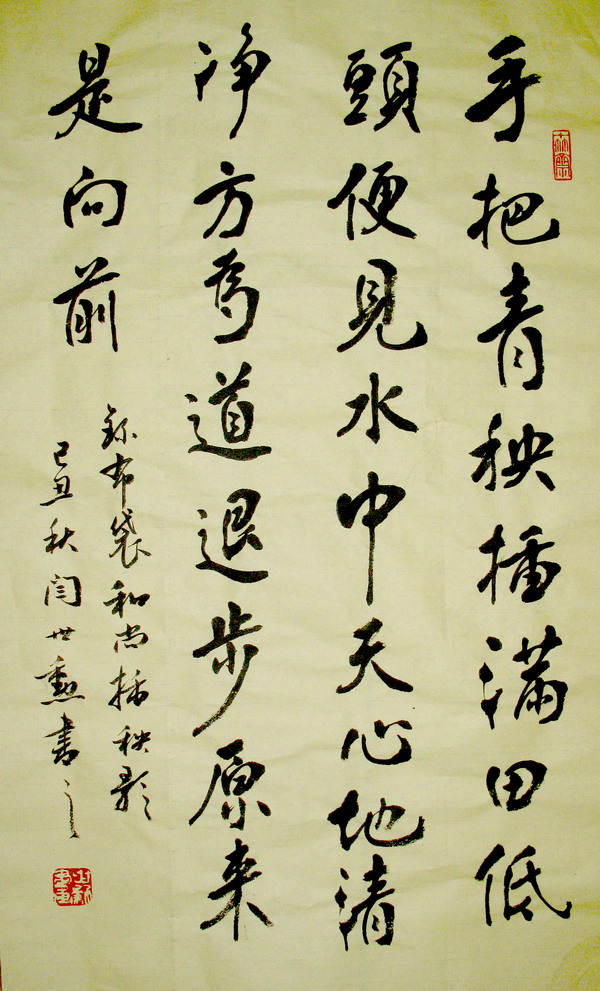 手把青秧插滿田低
頭便見水中天心地清
净方為道退步原来
是向前
録布袋和尚插秧歌
己丑秋闫世勳書之